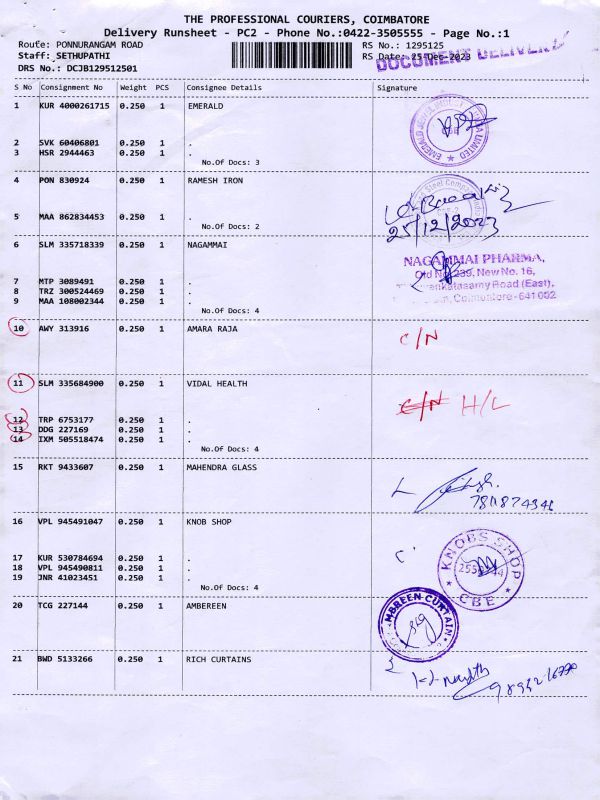 THE PROFESSIONAL COURIERS, COIMBATORE
Delivery Runsheet - PC2 - Phone No.:0422-3505555 - Page No.:1
Route: PONNURANGAM ROAD RS No.: 1295125
Staff: SETHUPATHI RS Date: 25-Dec-2023
DRS No.: DCJB129512501 DOCUMENT DELIVERE
S No Consignment No Weight PCS Consignee Details Signature
1 KUR 4000261715 0.250 1 EMERALD
2 SVK 60406801 0.250 1 .
3 HSR 2944463 0.250 1 .
No.Of Docs: 3
4 PON 830924 0.250 1 RAMESH IRON
25/12/2023
5 MAA 862834453 0.250 1 .
No.Of Docs: 2
6 SLM 335718339 0.250 1 NAGAMMAI
NAGAMMAI PHARMA,
Old No. 239, New No. 16,
7 MTP 3089491 0.250 1 .
8 TRZ 300524469 0.250 1 .
(East),
9 MAA 108002344 0.250 1 .
Coimbatore - 641 002
No.Of Docs: 4
10 AWY 313916 0.250 1 AMARA RAJA
C/N
11 SLM 335684900 0.250 1 VIDAL HEALTH
C/N H/L
12 TRP 6753177 0.250 1 .
13 DDG 227169 0.250 1 .
14 IXM 505518474 0.250 1 .
No.Of Docs: 4
15 RKT 9433607 0.250 1 MAHENDRA GLASS
16 VPL 945491047 0.250 1 KNOB SHOP
KNOBS SHOP
CBE
17 KUR 530784694 0.250 1 .
18 VPL 945490811 0.250 1 .
19 JNR 41023451 0.250 1 .
No.Of Docs: 4
20 TCG 227144 0.250 1 AMBEREEN
MBREEN CURTAIN
21 BWD 5133266 0.250 1 RICH CURTAINS